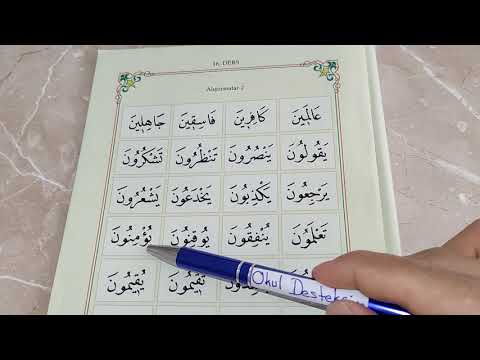 16. DERS
Alıştırmalar-2
عَالَمِينَ كَافِرِينَ فَاسِقِينَ جَاهِلِينَ
يَقُولُونَ يَنْصُرُونَ تَنْظُرُونَ تَشْكُرُونَ
يَرْجِعُونَ يَكْذِبُونَ يَخْدَعُونَ يَشْعُرُونَ
تَعْلَمُونَ يُنْفِقُونَ يُوقِنُونَ يُؤْمِنُونَ
تُقِيمُونَ يُقِيمُونَ
Okul Desteksiz